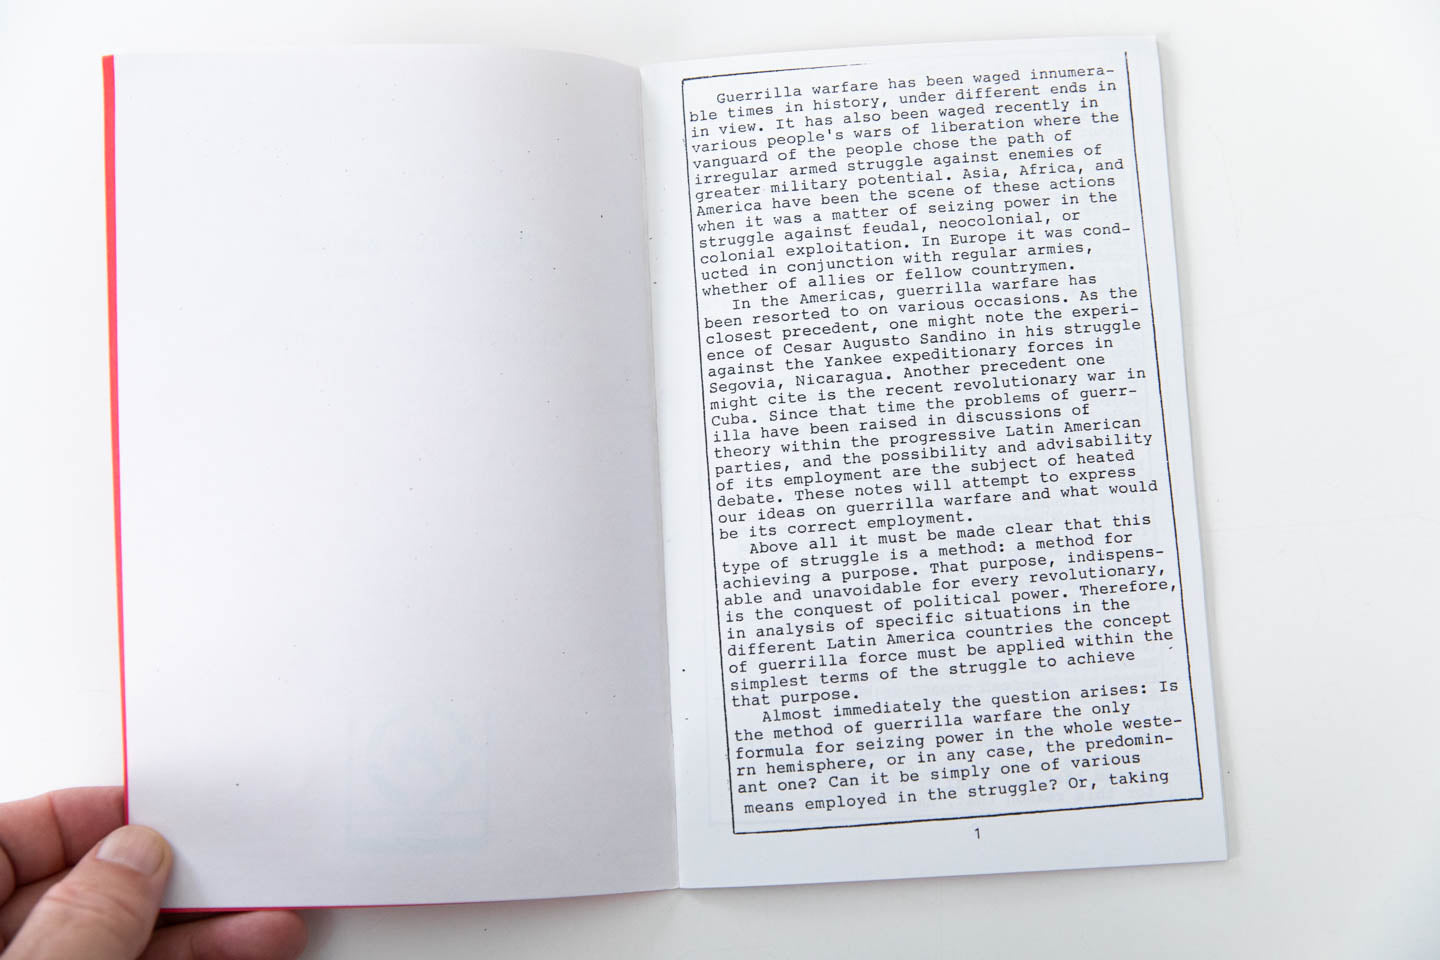 Guerrilla warfare has been waged innumera-
ble times in history, under different ends in
in view. It has also been waged recently in
various people's wars of liberation where the
vanguard of the people chose the path of
irregular armed struggle against enemies of
greater military potential. Asia, Africa, and
America have been the scene of these actions
when it was a matter of seizing power in the
struggle against feudal, neocolonial, or
colonial exploitation. In Europe it was cond-
ucted in conjunction with regular armies,
whether of allies or fellow countrymen.
In the Americas, guerrilla warfare has
been resorted to on various occasions. As the
closest precedent, one might note the experi-
ence of Cesar Augusto Sandino in his struggle
against the Yankee expeditionary forces in
Segovia, Nicaragua. Another precedent one
might cite is the recent revolutionary war in
Cuba. Since that time the problems of guerr-
illa have been raised in discussions of
theory within the progressive Latin American
parties, and the possibility and advisability
of its employment are the subject of heated
debate. These notes will attempt to express
our ideas on guerrilla warfare and what would
be its correct employment.
Above all it must be made clear that this
type of struggle is a method: a method for
achieving a purpose. That purpose, indispens-
able and unavoidable for every revolutionary,
is the conquest of political power. Therefore,
in analysis of specific situations in the
different Latin America countries the concept
of guerrilla force must be applied within the
simplest terms of the struggle to achieve
that purpose.
Almost immediately the question arises: Is
the method of guerrilla warfare the only
formula for seizing power in the whole weste-
rn hemisphere, or in any case, the predomin-
ant one? Can it be simply one of various
means employed in the struggle? Or, taking
1